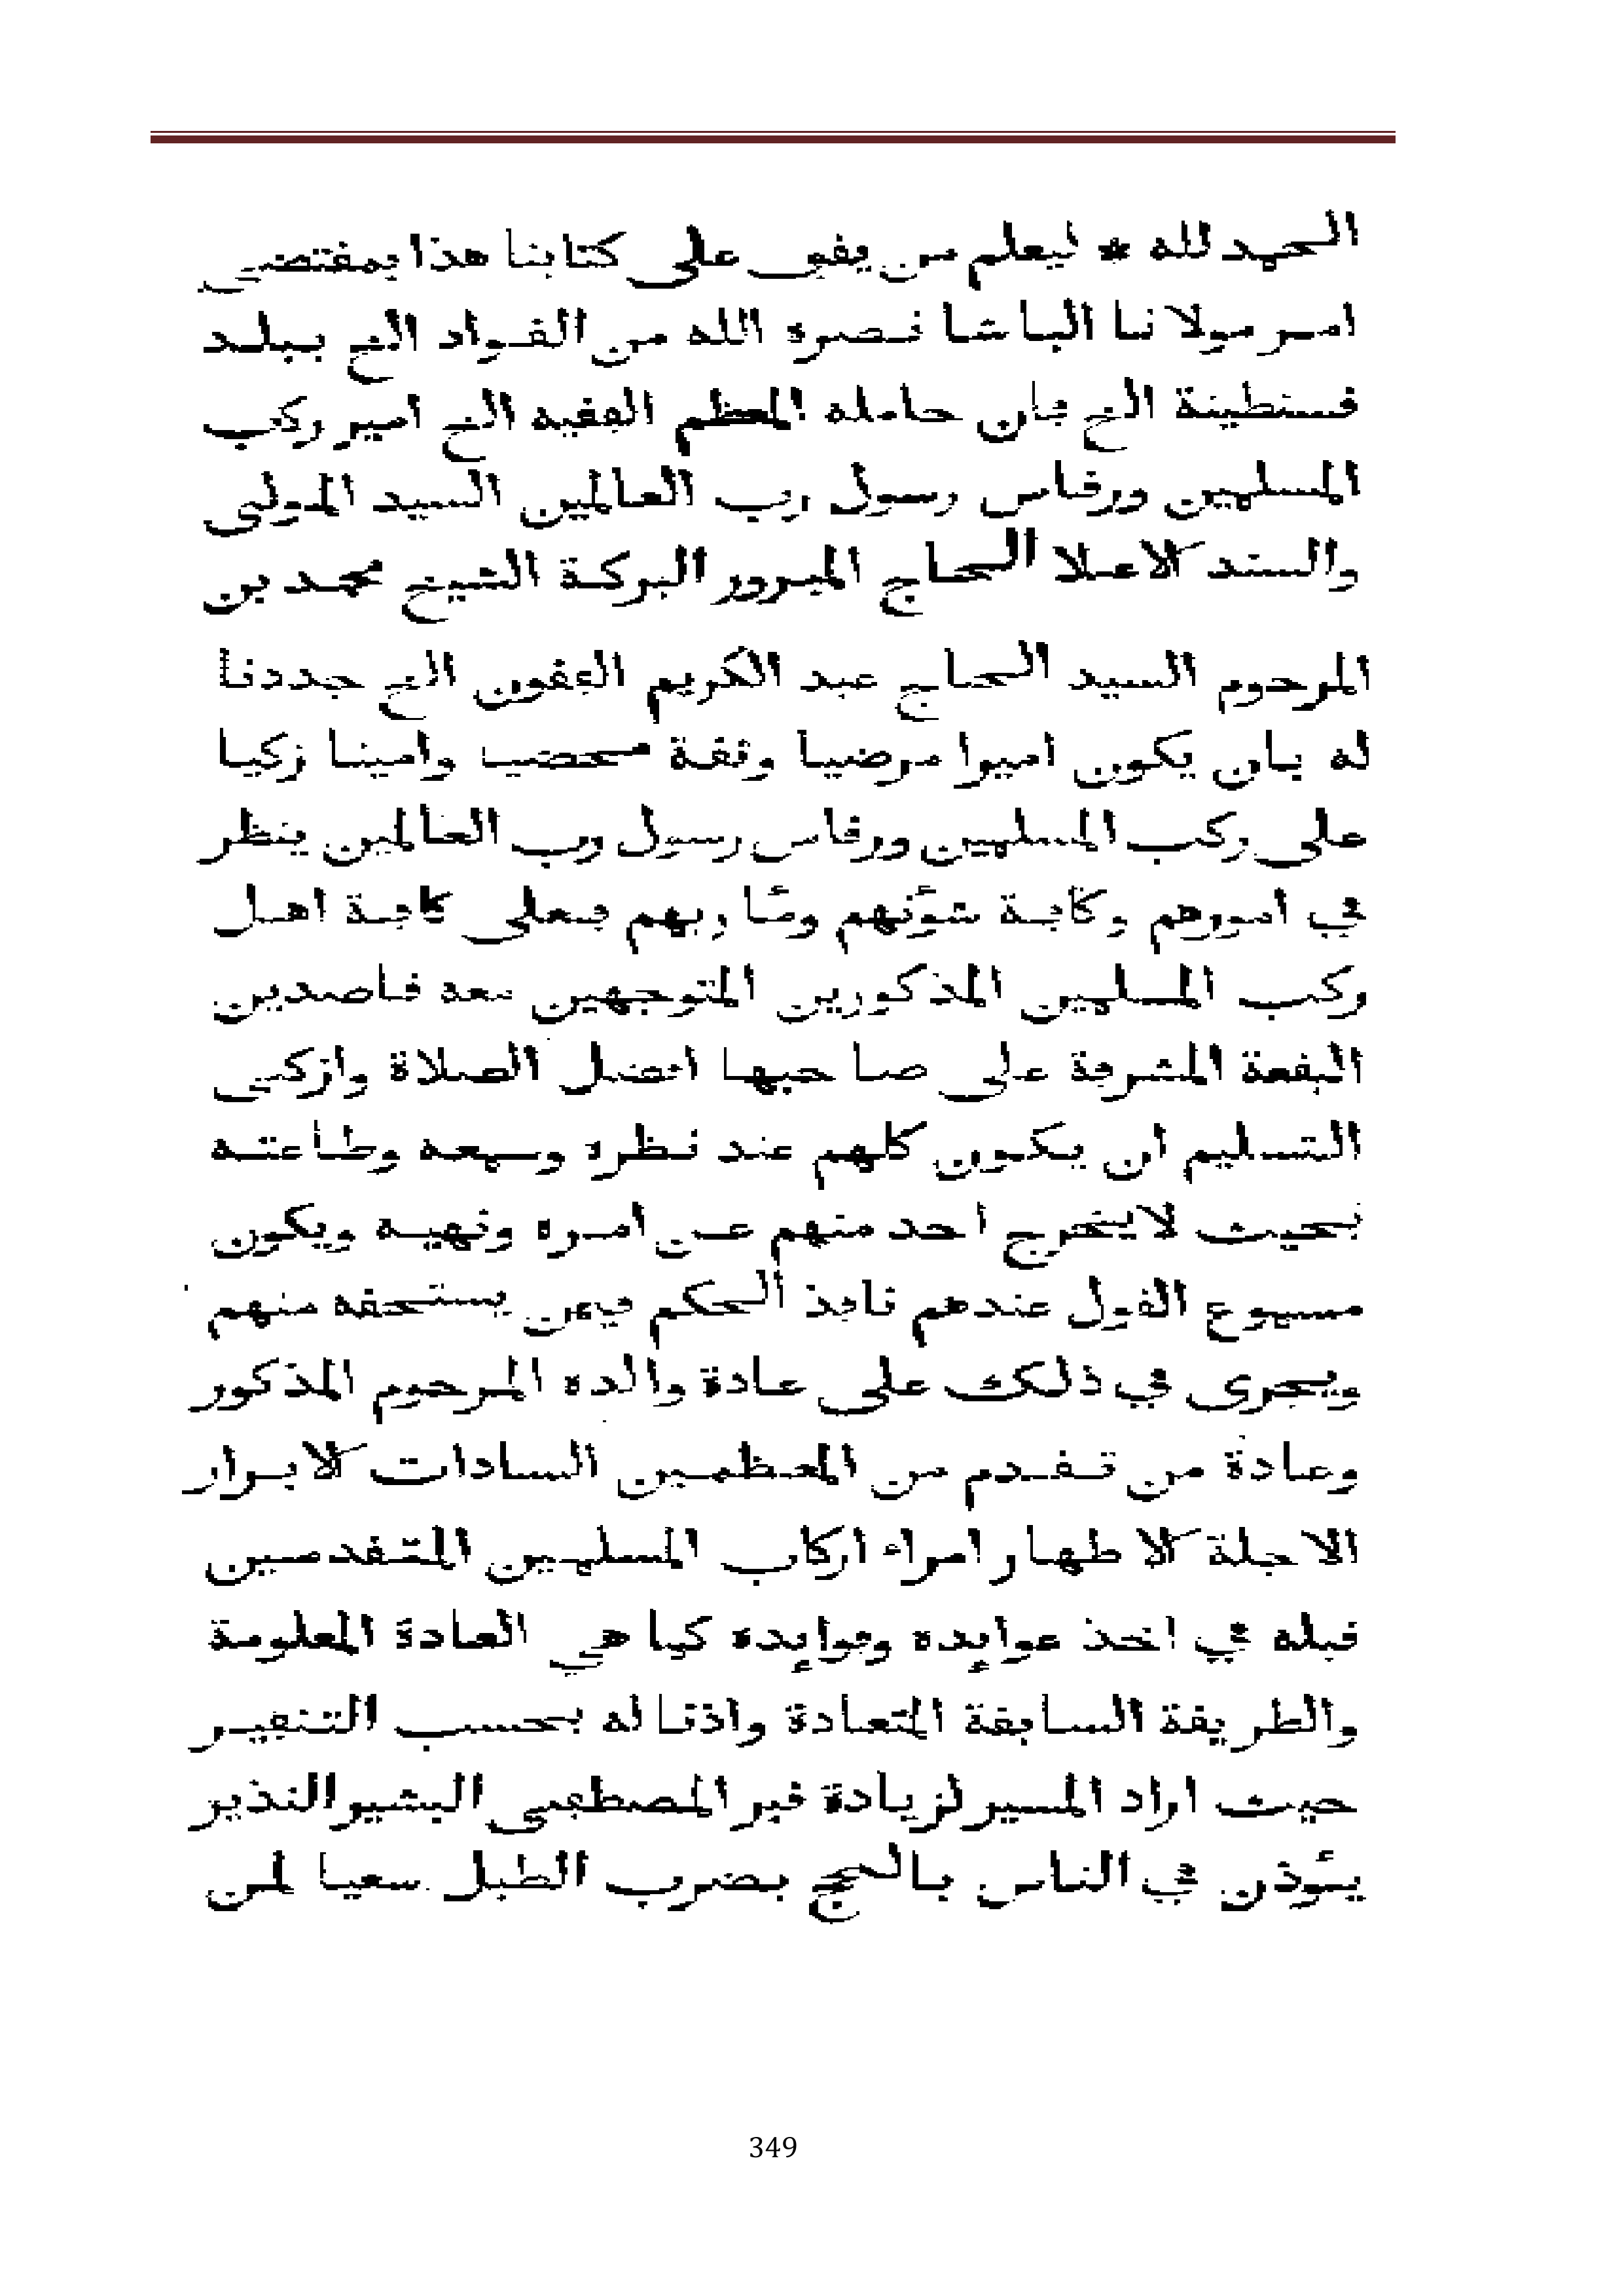 الحمد لله * ليعلم من يقف على كتابنا هذا بمقتضى
امر مولانا الباشا نصره الله من القواد الخ ببلد
قسنطينة الخ فان حامله المعظم الفقيه الخ امير ركب
المسلمين ورقاس رسول رب العالمين السيد المولى
والسند الاعلا الحاج المبرور البركة الشيخ محمد بن
المرحوم السيد الحاج عبد الكريم الفقون الخ جددنا
له بان يكون اميرا مرضيا وثقة محضيا وامينا زكيا
على ركب المسلمين ورقاس رسول رب العالمين ينظر
في امورهم وكآفة شؤنهم ومئاربهم فعلى كافة اهل
ركب المسلمين المذكورين المتوجهين معه قاصدين
البقعة المشرفة على صاحبها افضل الصلاة وازكى
التسليم ان يكون كلهم عند نظره وسمعه وطاعته
بحيث لا يخرج احد منهم عن امره ونهيه ويكون
مسموع القول عندهم نافذ الحكم فيمن يستحقه منهم
ويجرى في ذلك على عادة والده المرحوم المذكور
وعادة من تقدم من المعظمين السادات الابرار
الاجلة الاطهار امراء اركاب المسلمين المتقدمين
قبله في اخذ عوايده وفوايده كما هي العادة المعلومة
والطريقة السابقة المتعادة واذنا له بحسب التنفير
حيث اراد المسير لزيادة قبر المصطفى البشير النذير
يئوذن في الناس بالحج بضرب الطبل سعيا لمن
349